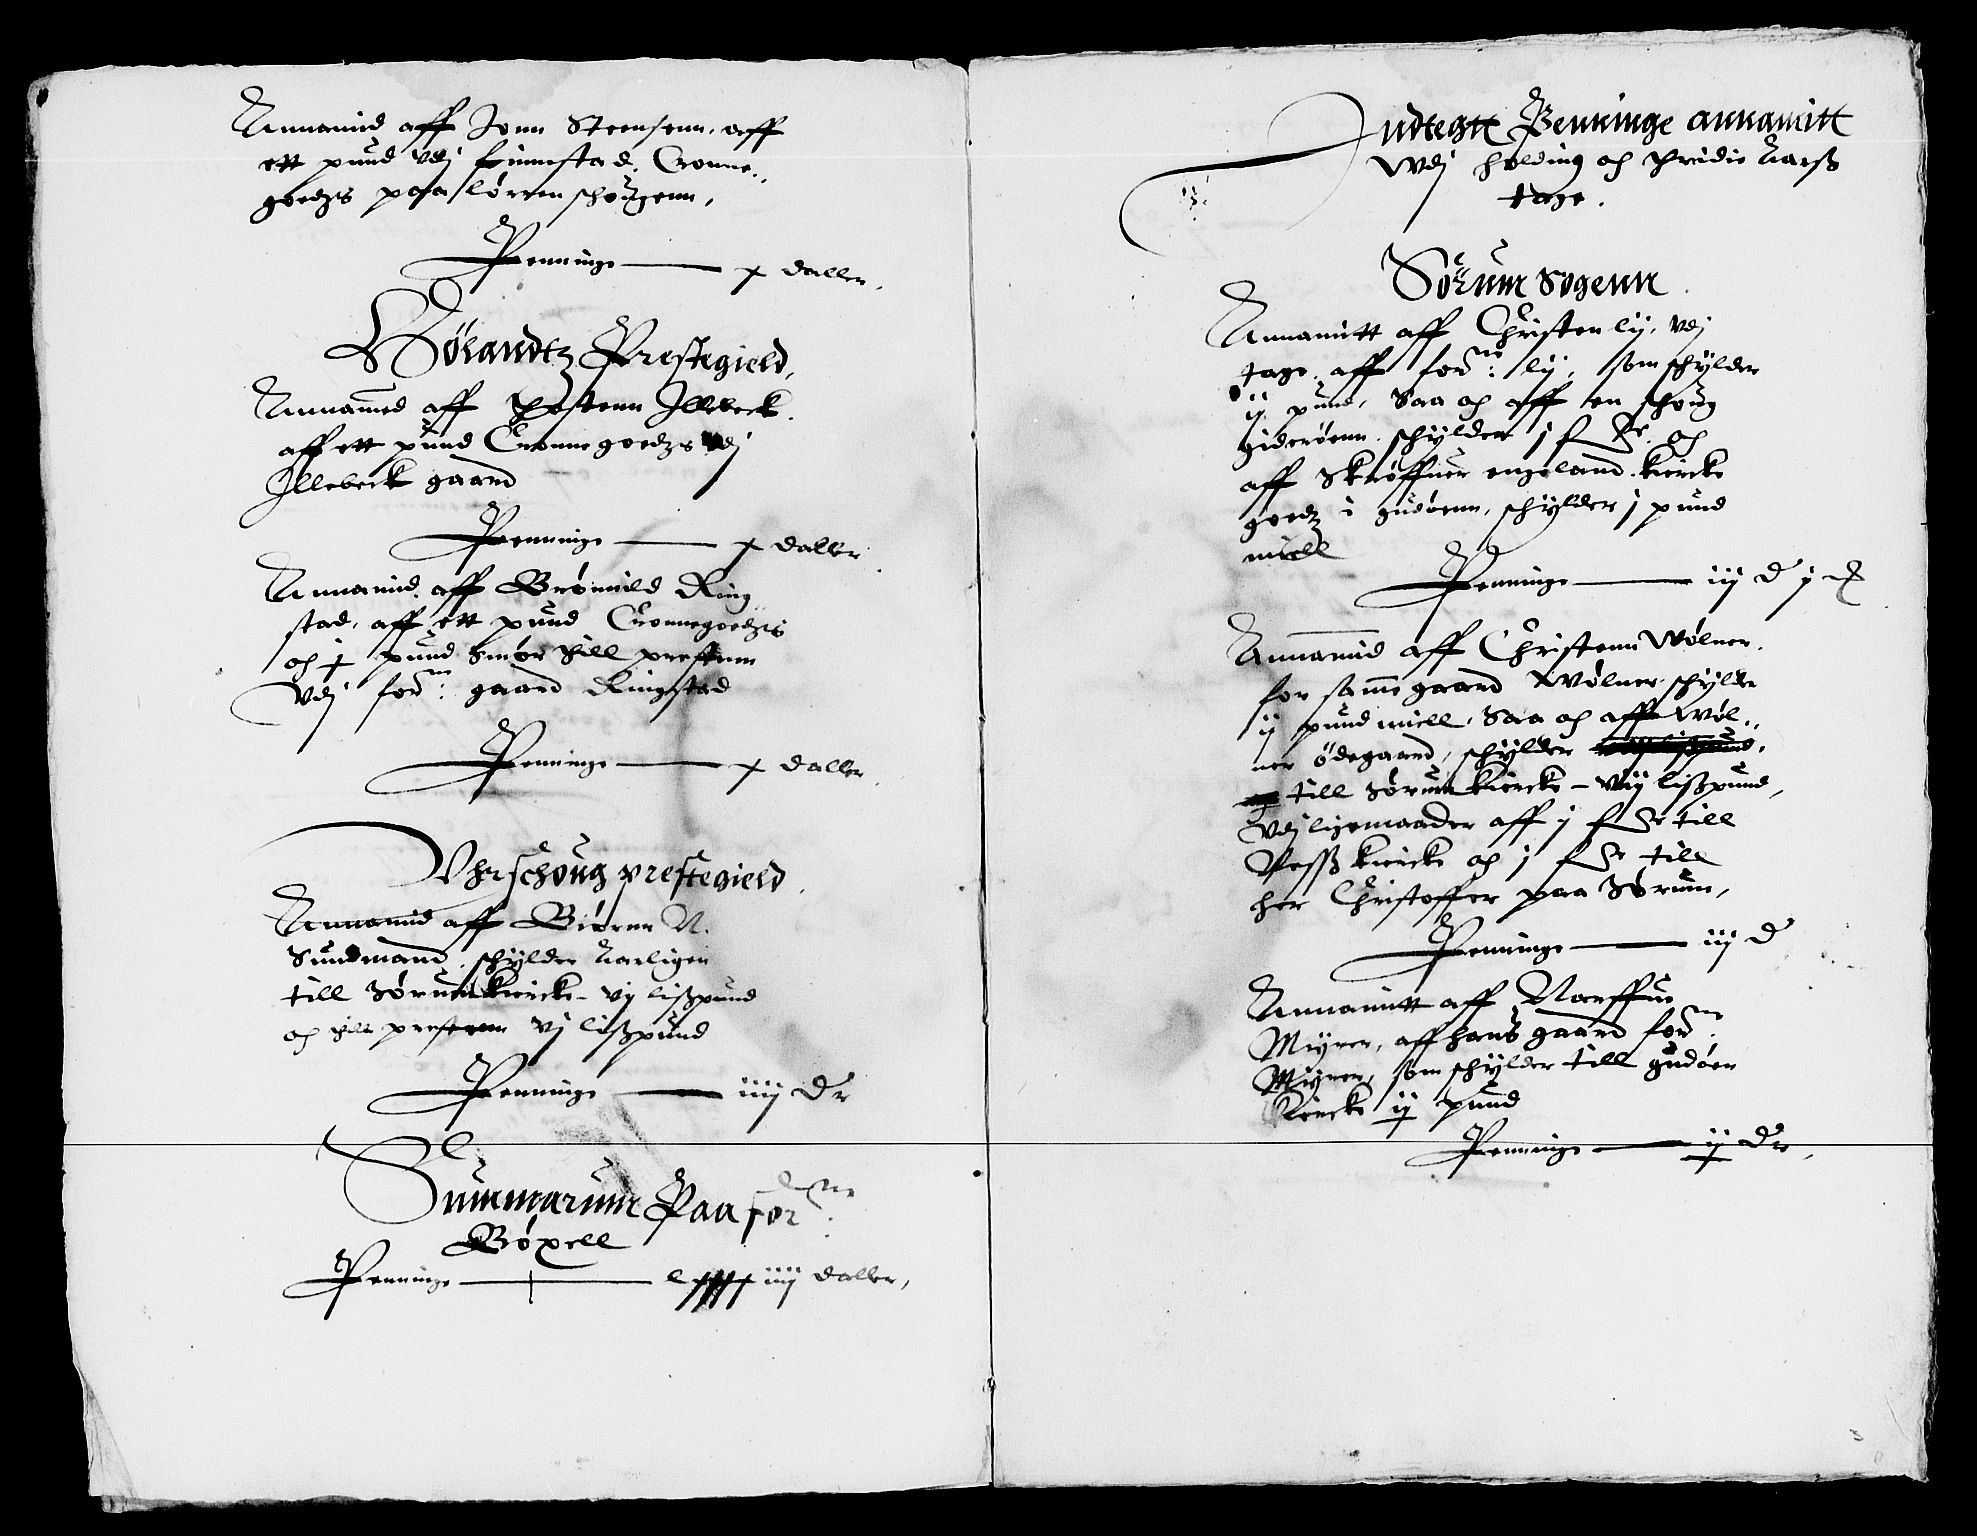 Annamid aff Jonn Steensenn, aff
ett pund vdj finnestad, Cronne„
goedzs paa lørrenschougenn,
Penninge ——— x daller,
Hølandtz Prestegield,
Annammed aff Thostenn Illebeck
aff ett pund Cronnegoedzs vdj
Illebeck gaard
Penninge ——— x daller
Annamid aff Brømild Ring
stad, aff ett pund Cronnegoedzis
och + pund Smør thill prestenn
vdj forne: gaard Ringstad
Penninge ——— x daller
Vhrschoug prestegield,
Annamid aff Biørnn N.
Sundmand, schylder Aarligen
till Sørum kiercke – vij lißpund
och till prestenn vj lißpund
Penninge ——— iiij Dr
Summarum Paa forne:
Bøxell
Penninge ——— lxxxxiiij daller,
Indtegtt Penninge annamitt
Wdj holding och thridie Aarß
tage.
Sørum Sogenn
Annamitt aff Christen lij, vdj
tage aff forne: lij, som schylder
ij pund, Saa och aff en schoug
giderøenn, schylder j f, och
aff Skøffuer engeland kircke
goedz i gudøenn, schylder j pund
miell
Penninge ——— iij D j
Annammid aff Christenn Wølner,
for samme gaard Wølner, schylder
ij pund miell, Saa och aff Wøl„
ner ødegaard, schylder
till Sørum kiercke – vij lißpund,
vdj ligemaader aff j f till
kiercke och j f till
her Christoffer paa Sørum,
Penninge ——— iij D
Annamitt aff Narffue
Myrer, aff hans gaard forne:
Myrer, som schylder till gudøen
kircke ij pund
Penninge ——— ij Dr,